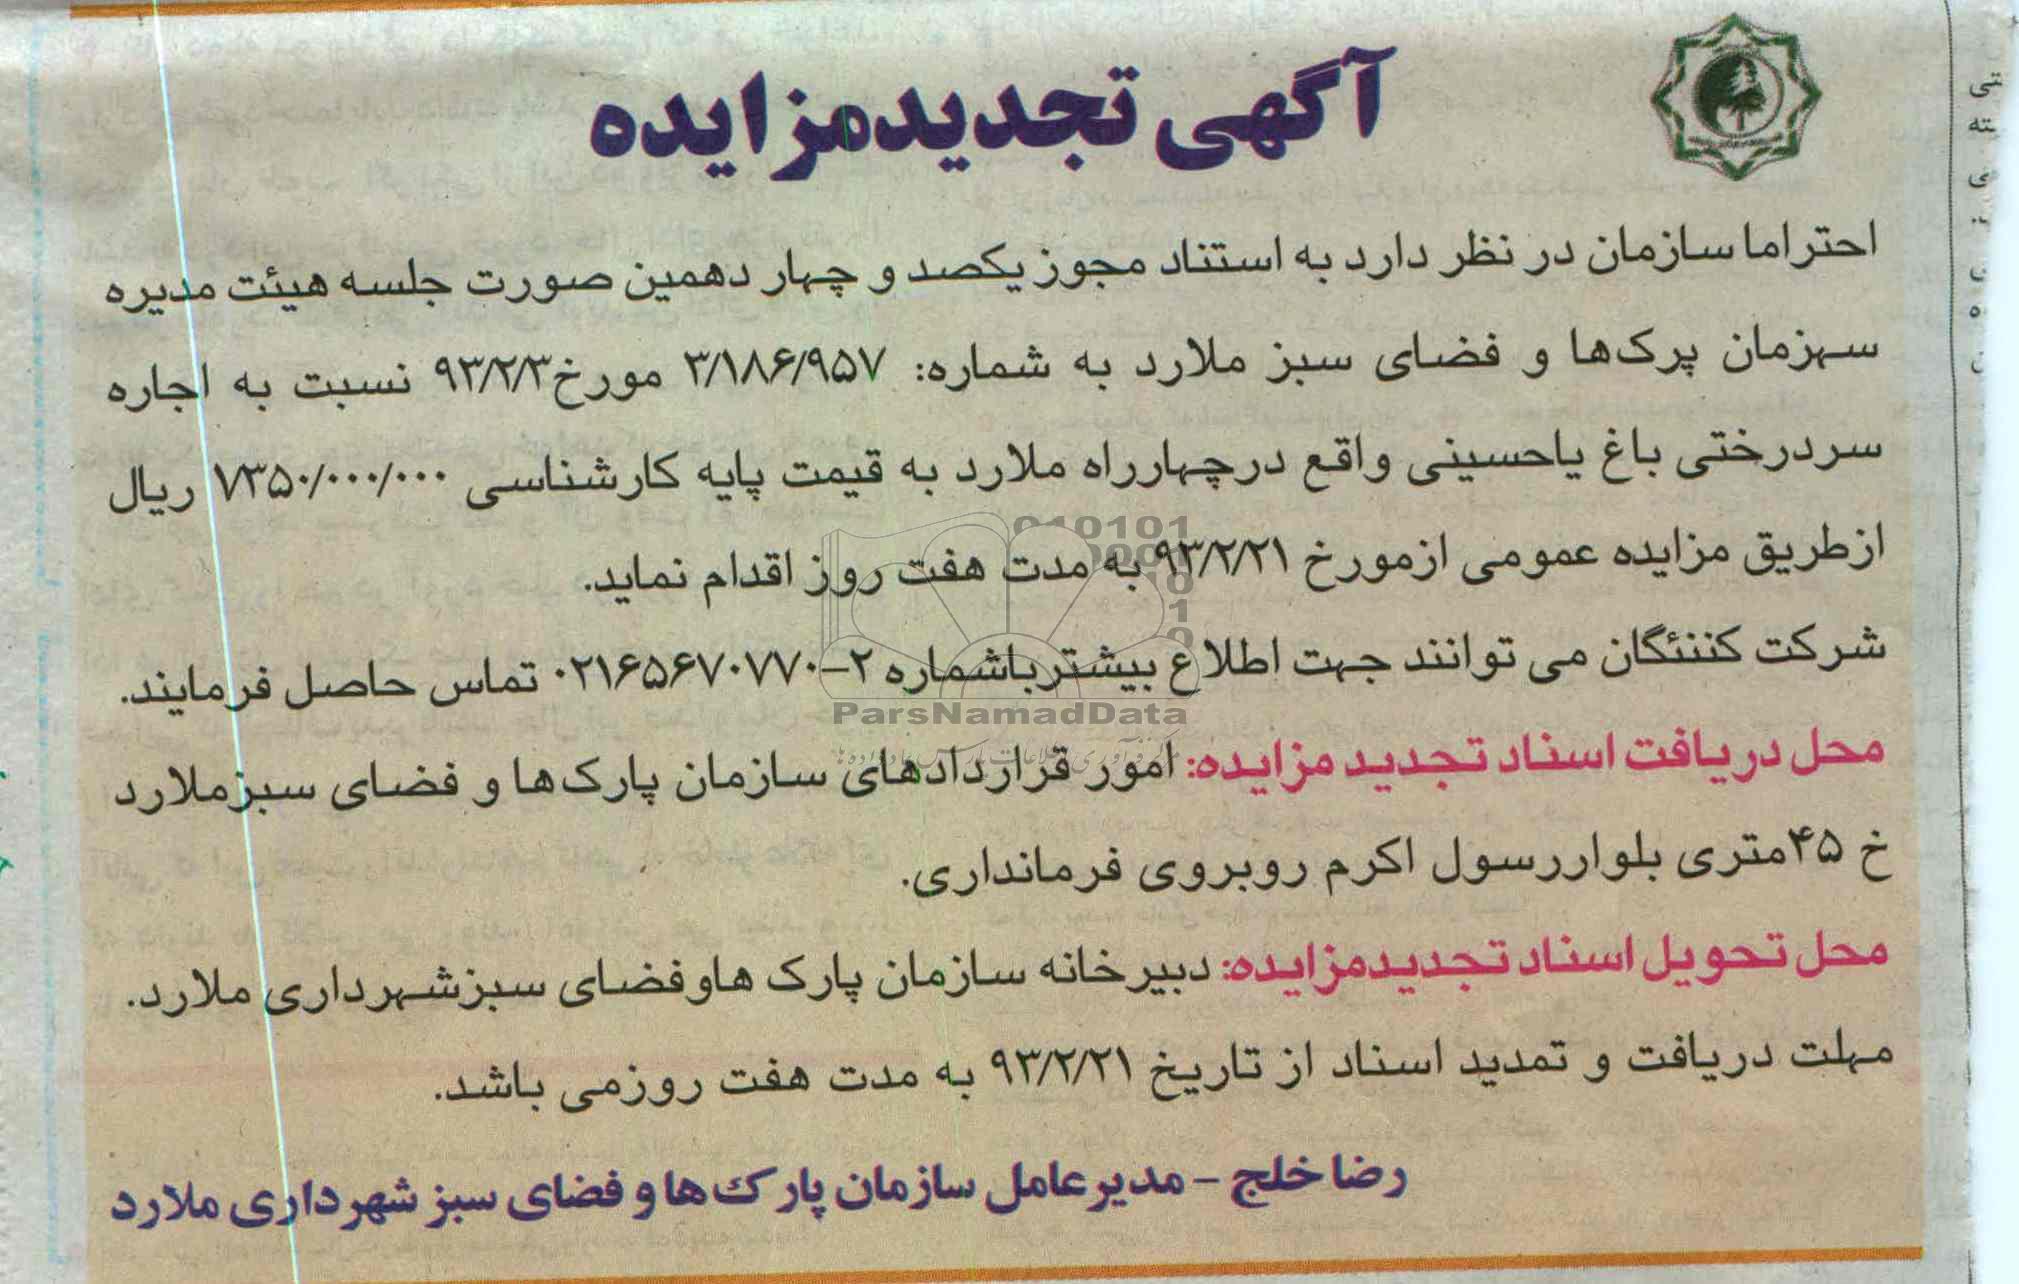 آگهی تجدیدمزایده
احتراما سازمان در نظر دارد به استناد مجوز یکصد و چهار دهمین صورت جلسه هیئت مدیره
سهزمان پرک‌ها و فضای سبز ملارد به شماره: ۳/۱۸۶/۹۵۷ مورخ۹۳/۲/۳ نسبت به اجاره
سردرختی باغ یاحسینی واقع درچهارراه ملارد به قیمت پایه کارشناسی ۷۳۵۰/۰۰۰/۰۰۰ ریال
ازطریق مزایده عمومی ازمورخ ۹۳/۲/۲۱ به مدت هفت روز اقدام نماید.
شرکت کننئگان می توانند جهت اطلاع بیشترباشماره ۲-۰۲۱۶۵۶۷۰۷۷۰ تماس حاصل فرمایند.
محل دریافت اسناد تجدید مزایده: امور قراردادهای سازمان پارک‌ها و فضای سبزملارد
خ ۴۵متری بلواررسول اکرم روبروی فرمانداری.
محل تحویل اسناد تجدیدمزایده: دبیرخانه سازمان پارک هاوفضای سبزشهرداری ملارد.
مهلت دریافت و تمدید اسناد از تاریخ ۹۳/۲/۲۱ به مدت هفت روزمی باشد.
رضا خلج - مدیرعامل سازمان پارک‌ها و فضای سبز شهرداری ملارد
ParsNamadData